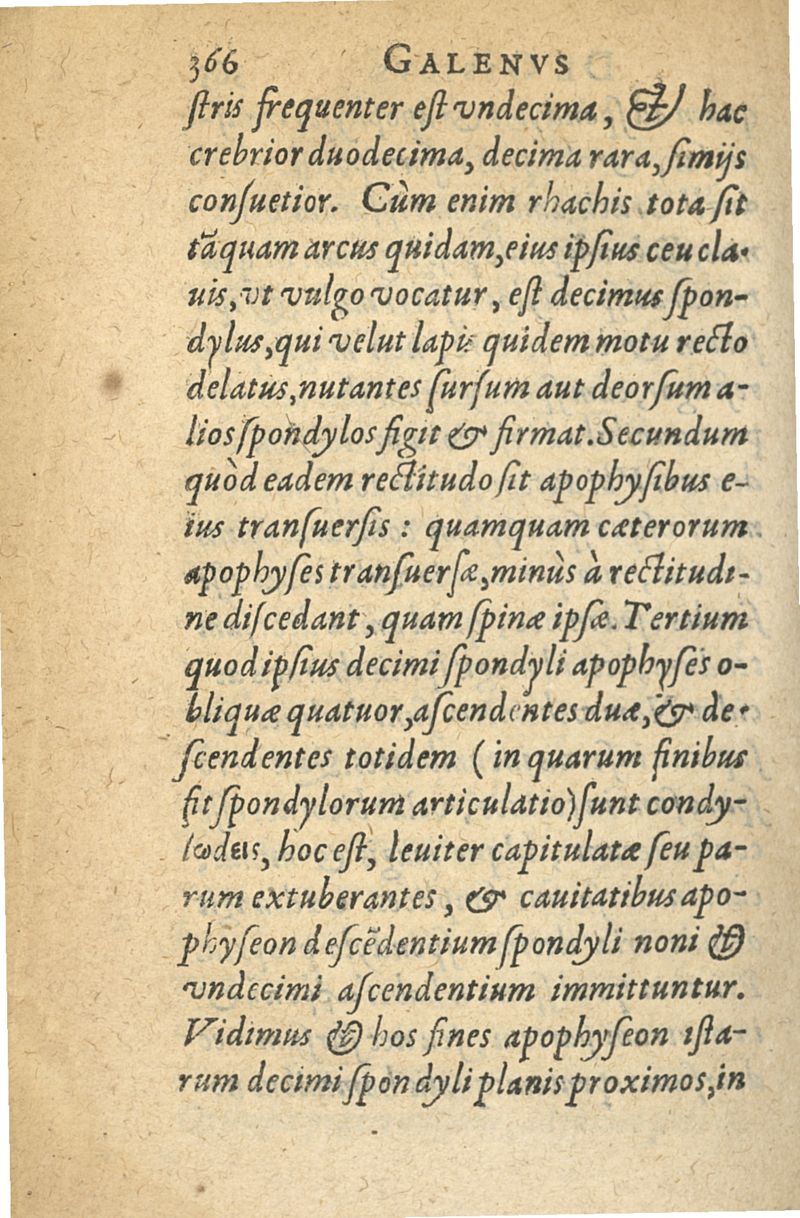 366 GALENVS
ſtris frequenter eſt vndecima, & hac
crebrior duodecima, decima rara, ſimijs
conſuetior. Cùm enim rhachis tota ſit
tãquam arcus quidam, eius ipſius ceu cla-
uis, vt vulgo vocatur, eſt decimus ſpon-
dylus, qui velut lapis quidem motu recto
delatus, nutantes ſurſum aut deorſum a-
lios ſpondylos figit & firmat. Secundum
quòd eadem rectitudo ſit apophyſibus e-
ius tranſuerſis : quamquam cæterorum
apophyſes tranſuerſæ, minùs à rectitudi-
ne diſcedant, quam ſpinæ ipſæ. Tertium
quod ipſius decimi ſpondyli apophyſes o-
bliquæ quatuor, aſcendentes duæ, & de-
ſcendentes totidem ( in quarum finibus
fit ſpondylorum articulatio) ſunt condy-
lωδεις, hoc eſt, leuiter capitulatæ ſeu pa-
rum extuberantes, & cauitatibus apo-
phyſeon deſcẽdentium ſpondyli noni &
vndecimi aſcendentium immittuntur.
Vidimus & hos fines apophyſeon iſta-
rum decimi ſpondyli planis proximos, in